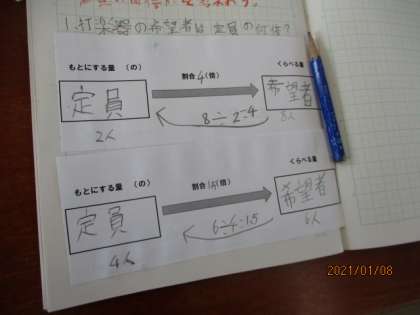 1.打楽器の希望者は定員の何倍?
もとにする量 (の) 割合4(倍) くらべる量
定員 希望者
8÷2=4
2人 8人
もとにする量 (の) 割合1.5(倍) くらべる量
定員 希望者
6÷4=1.5
4人 6人
2021/01/08